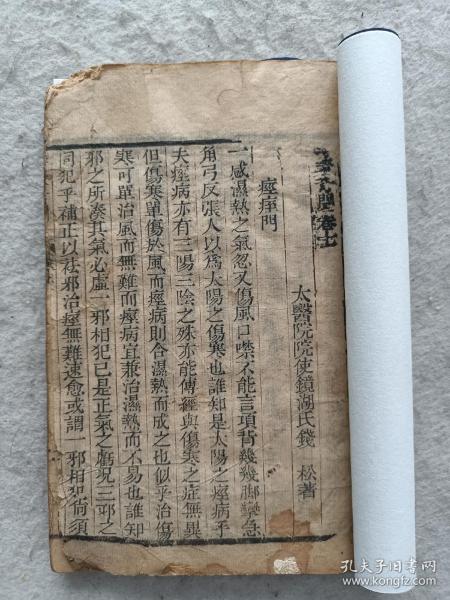 卷十
太醫院院使鏡湖氏錢　松著
痙痓門
一感濕熱之氣忽又傷風口噤不能言項背幾幾脚攣急
角弓反張人以爲太陽之傷寒也誰知是太陽之痙病乎
夫痙病亦有三陽三陰之殊亦能傳經與傷寒之症無異
但傷寒單傷於風而痙病則合濕熱而成之也似乎治傷
寒可單治風而無難而痙病宜兼治濕熱而不易也誰知
邪之所湊其氣必虛一邪相犯已是正氣之虧况三邪之
同犯乎補正以祛邪治痙無難速愈或謂一邪相犯尚須
孔夫子旧书网
www.kongfz.com